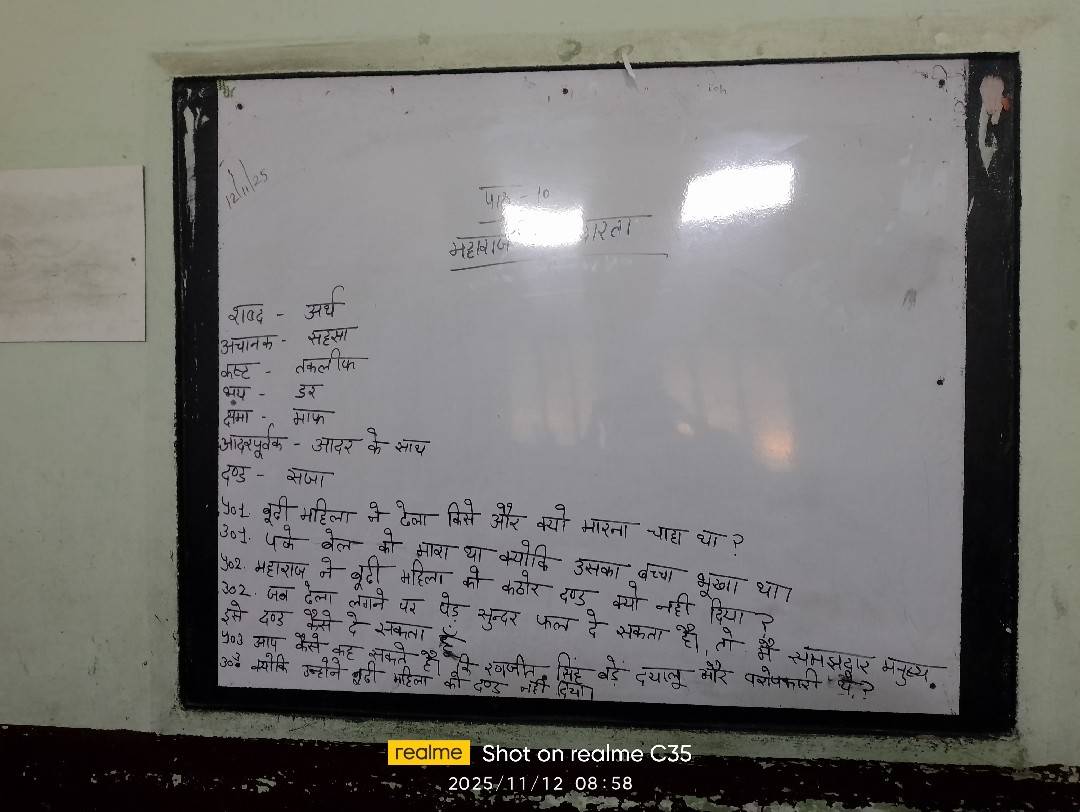 12/11/25
पाठ - 10
महाराज
शब्द - अर्थ
अचानक - सहसा
कष्ट - तकलीफ
भय - डर
क्षमा - माफ
आदरपूर्वक - आदर के साथ
दण्ड - सजा
प्र01. बूढी महिला ने ढेला किसे और क्यो मारना चाहा था ?
उ01. पके बेल को मारा था क्योकि उसका बच्चा भूखा था।
प्र02. महाराज ने बूढी महिला को कठोर दण्ड क्यो नही दिया ?
उ02. जब ढेला लगने पर पेड़ सुन्दर फल दे सकता है, तो मै समझदार मनुष्य
इसे दण्ड कैसे दे सकता
प्र03 आप कैसे कह सकते है कि रणजीत सिंह बड़े दयालू और परोपकारी थे ?
उ03 क्योकि उन्होने बूढी महिला को दण्ड नही दिया।
realme Shot on realme C35
2025/11/12 08:58